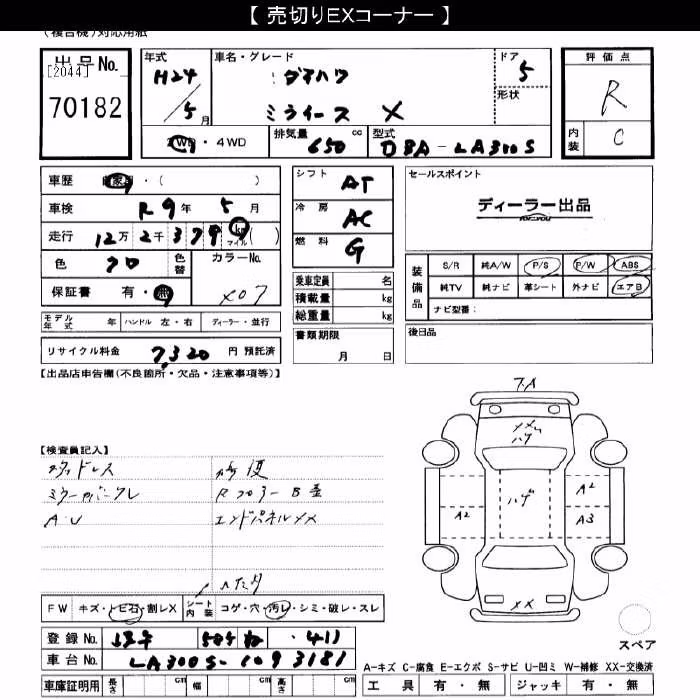 【 売切りEXコーナー 】
(複合機)対応用紙
出品No.
[2044]
70182
年式
H24/5月
車名・グレード
ダイハツ
ミライース X
ドア
5
形状
評価点
R
内装
C
2WD・4WD
排気量
650 cc
型式
DBA-LA300S
車歴 自家用・( )
車検 R9年 5月
走行 12万 2千 379 km マイル ( )
色 クロ
色替
カラーNo.
X07
保証書 有・無
モデル年式 年 ハンドル 左・右 ディーラー・並行
リサイクル料金 7,320 円 預託済
シフト AT
冷房 AC
燃料 G
乗車定員 名
積載量 kg
総重量 kg
書類期限
月 日
セールスポイント
ディーラー出品
装備品
S/R 純A/W P/S P/W ABS
純TV 純ナビ 革シート 外ナビ エアB
ナビ型番:
後日品
【出品店申告欄(不良箇所・欠品・注意事項等)】
【検査員記入】
タテドレス 修復
ミラーカバークレ Rフロアー B歪
A・U エンドパネルXX
ヘたり
FW キズ・トビ石・割レX
シート内装 コゲ・穴・汚レ・シミ・破レ・スレ
登録No.
411
車台No. LA300S-1093181
車庫証明用 長さ cm 幅 cm 高さ cm
フA
XXu
ハゲ
ハゲ
A2
A2
A3
XX
スペア
A-キズ C-腐食 E-エクボ S-サビ U-凹ミ W-補修 XX-交換済
工具 有・無 ジャッキ 有・無